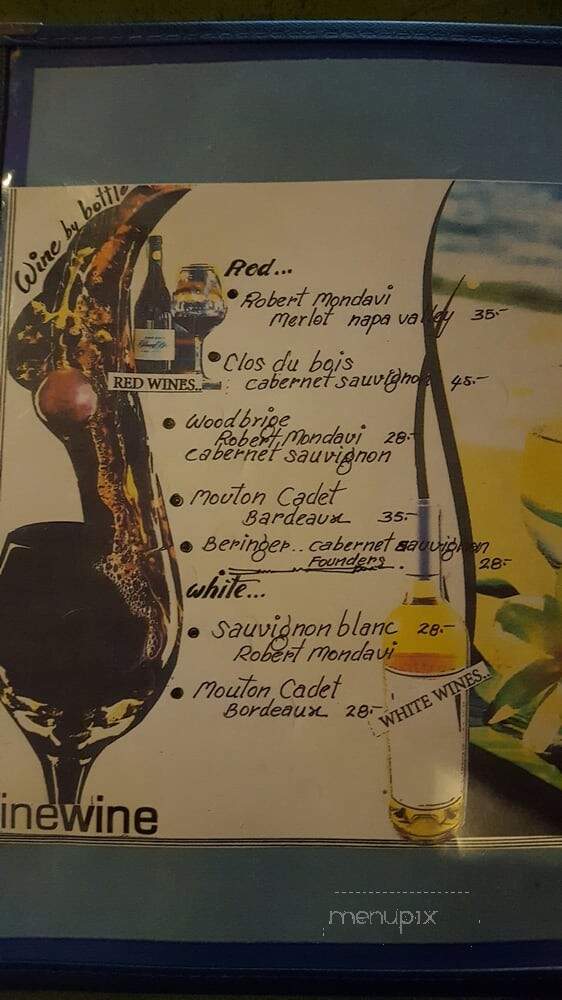 Wine by bottle
Red...
Robert Mondavi
Merlot napa valley 35.-
RED WINES..
Clos du bois
cabernet sauvignon 45.-
Woodbrige
Robert Mondavi 28.-
cabernet sauvignon
Mouton Cadet
Bardeaux 35.-
Beringer.. cabernet sauvignon
Founders 28.-
white...
Sauvignon blanc 28.-
Robert Mondavi
Mouton Cadet
Bordeaux 28.-
WHITE WINES..
inewine
menupix